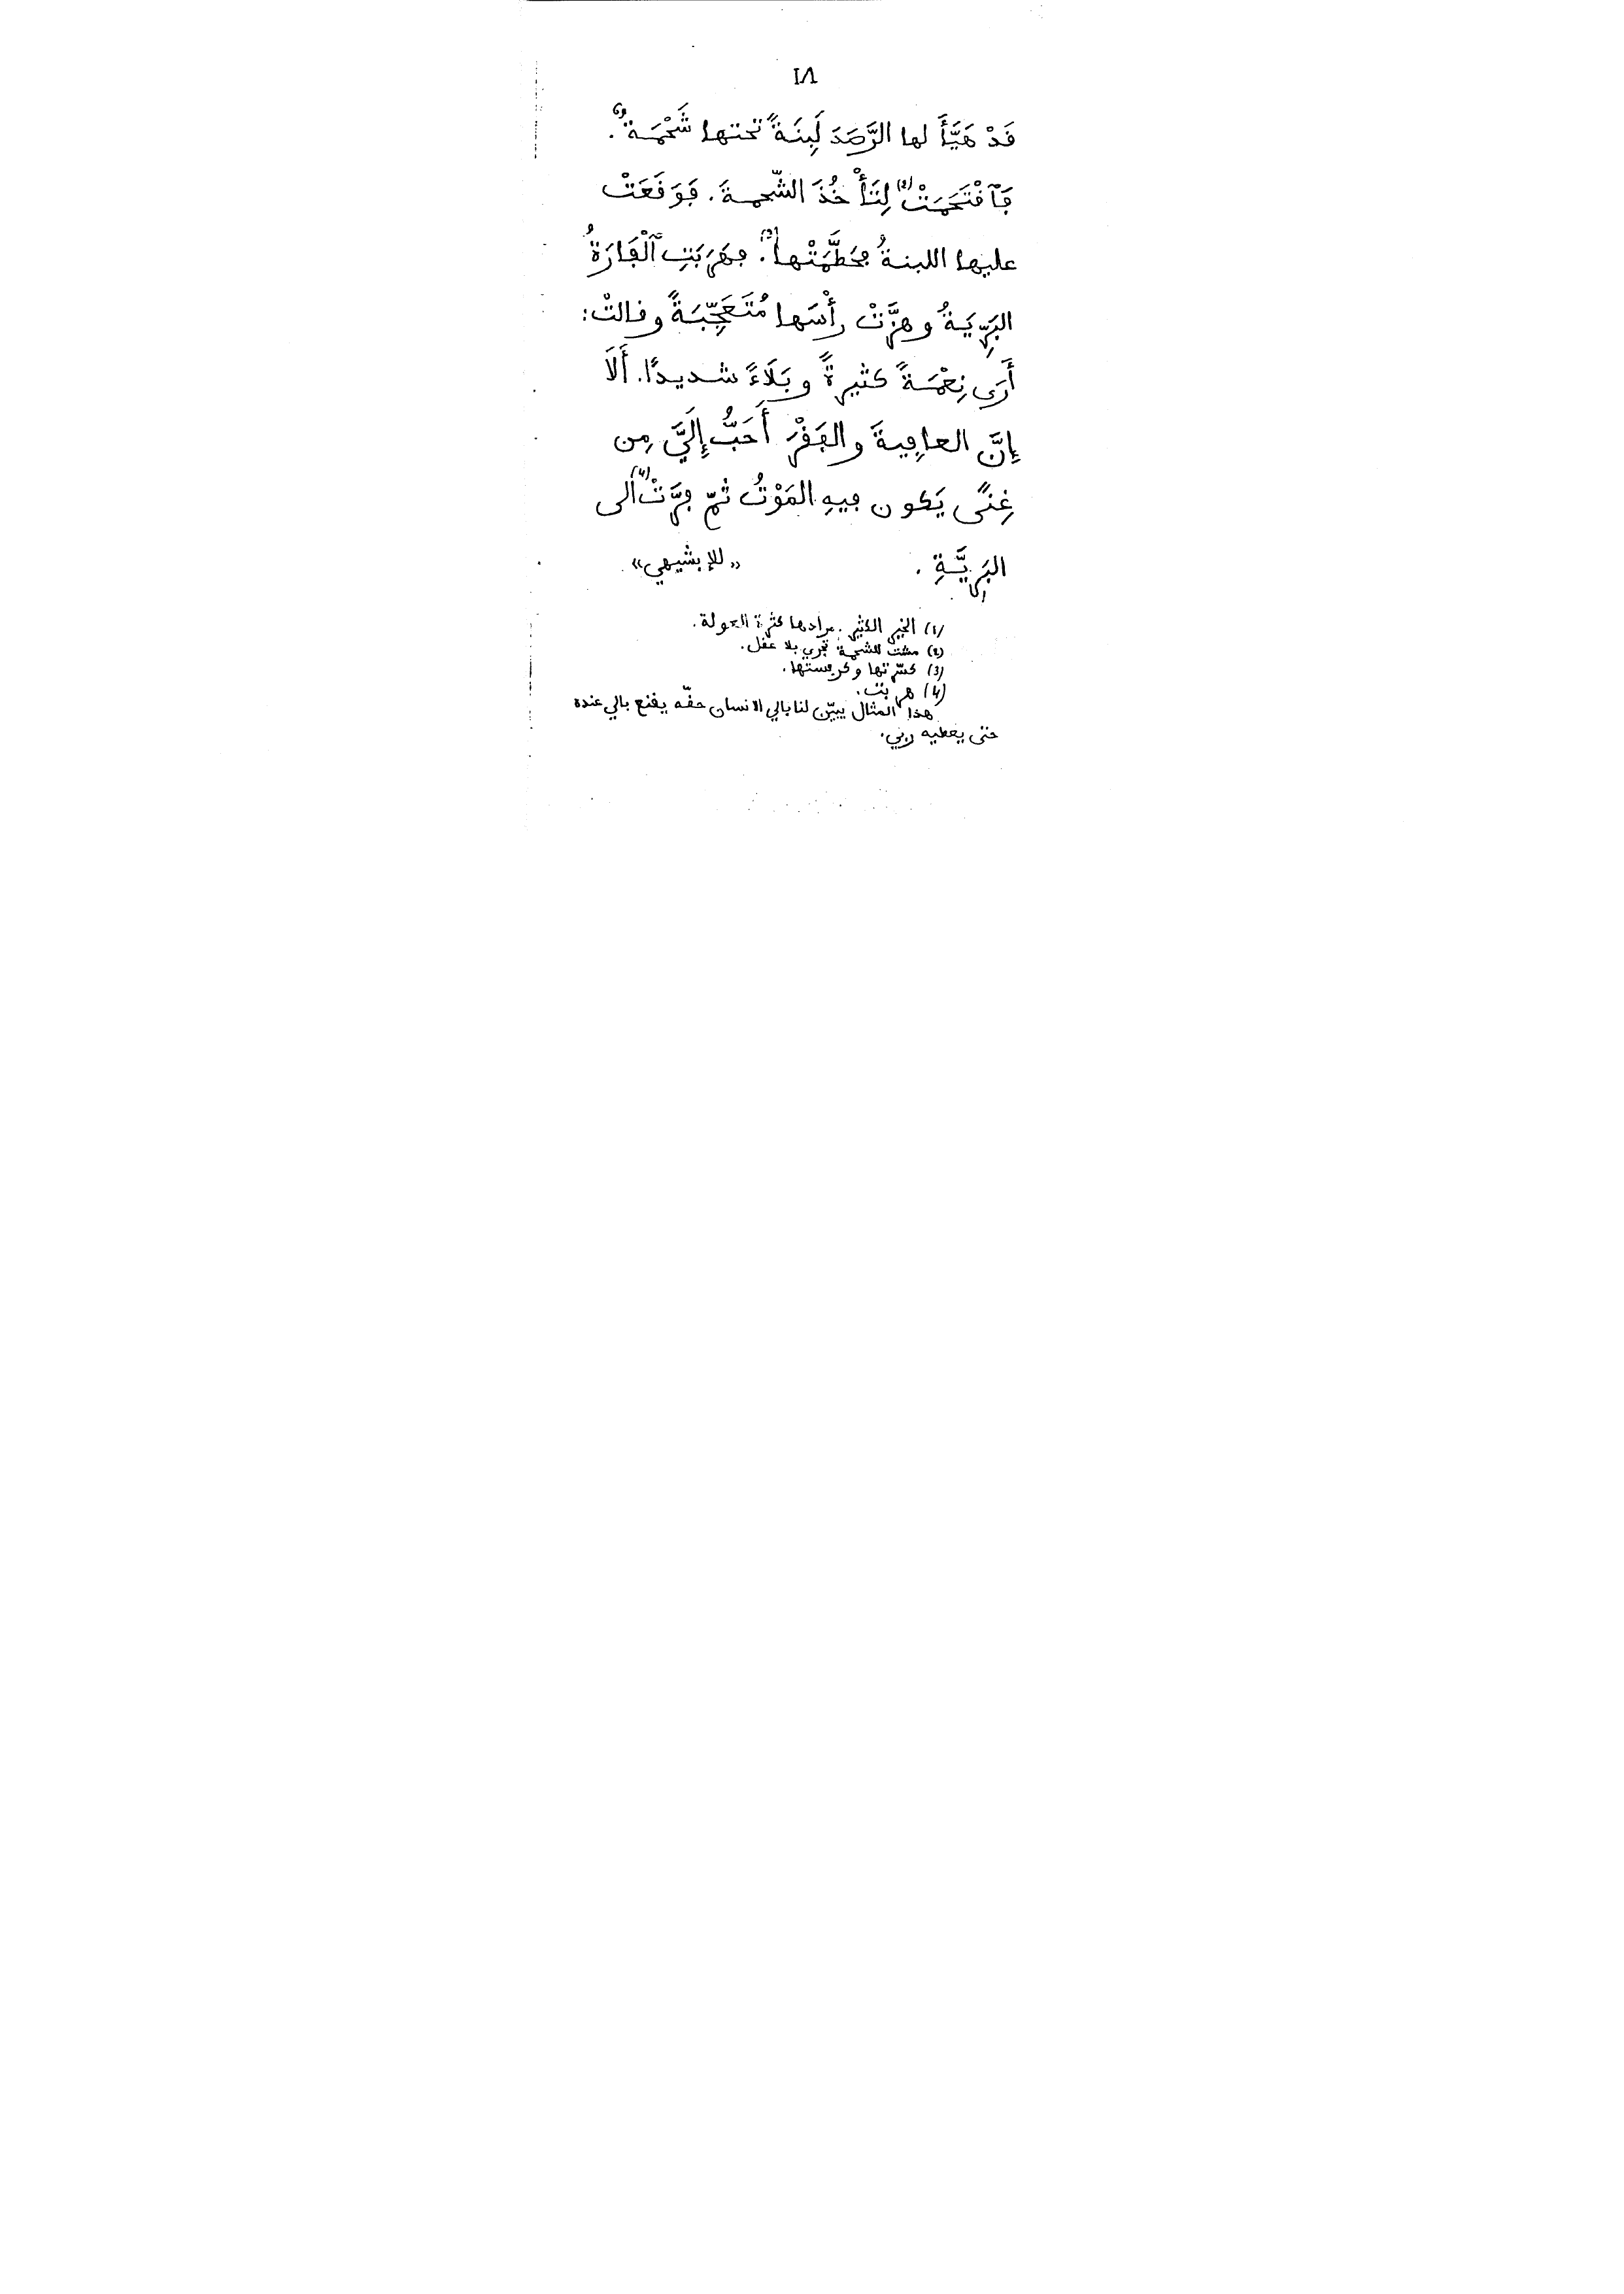 ١٨
قَدْ هَيَّأَ لها الرَّصَدَ لَبِنَةً تحتها شَحْمَةٌ.
فَٱقْتَحَمَتْ(2) لِتَأْخُذَ الشّحمةَ. فَوَقَعَتْ
عليها اللبنةُ فحَطَّمَتْها(3). فهَرَبَتِ ٱلْفَارَةُ
البَرِّيَةُ وهزَّتْ رأْسَها مُتَعَجِّبَةً وقالتْ:
أَرَى نِعْمَةً كثيرةً وبَلَاءً شديدًا. أَلَا
إِنَّ العافِيةَ والفَقْرَ أَحَبُّ إِلَيَّ مِن
غِنًى يَكون فيهِ المَوْتُ ثمّ فرَّتْ(4) الى
البَرِيَّةِ. «للإبشيهي»
(1) الخير الكثير. مرادها كثرة العولة.
(2) مشت للشحمة تجري بلا عقل.
(3) كسّرتها وكرفستها.
(4) هربت.
هذا المثال يبيّن لنا بالي الانسان حقّه يقنع بالي عنده
حتى يعطيه ربي.